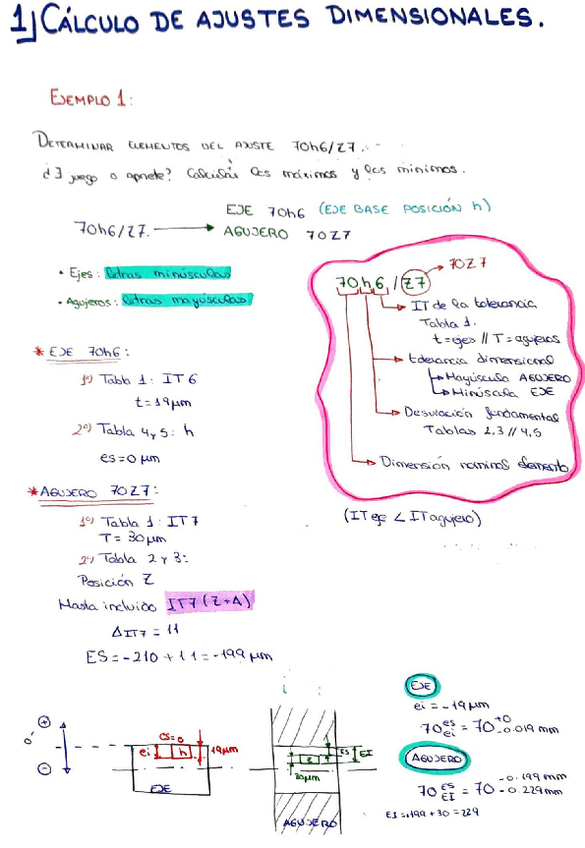 1] CÁLCULO DE AJUSTES DIMENSIONALES.
EJEMPLO 1:
DETERMINAR ELEMENTOS DEL AJUSTE 70h6/Z7.
¿∃ juego o apriete? Calcular los máximos y los mínimos.
70h6/Z7. → EJE 70h6 (EJE BASE POSICIÓN h)
AGUJERO 70Z7
• Ejes: letras minúsculas
• Agujeros: letras mayúsculas
70h6/Z7 → 70Z7
IT de la tolerancia
Tabla 1.
t=ejes // T=agujeros
tolerancia dimensional
Mayúscula AGUJERO
Minúscula EJE
Desviación fundamental
Tablas 2,3 // 4,5
Dimensión nominal elemento
(IT eje < IT agujero)
* EJE 70h6:
1º) Tabla 1: IT6
t=19μm
2º) Tabla 4 y 5: h
es=0 μm
* AGUJERO 70Z7:
1º) Tabla 1: IT7
T=30μm
2º) Tabla 2 y 3:
Posición Z
Hasta incluido IT7 (Z+Δ)
Δ IT7 = 11
ES=-210+11=-199 μm
EJE
ei=-19μm
70 es ei = 70 +0 -0.019 mm
AGUJERO
70 ES EI = 70 -0.199 mm -0.229 mm
EI=-199+30=229
⊕
0
⊖
es=0
ei
h
19μm
EJE
ES
EI
30μm
AGUJERO